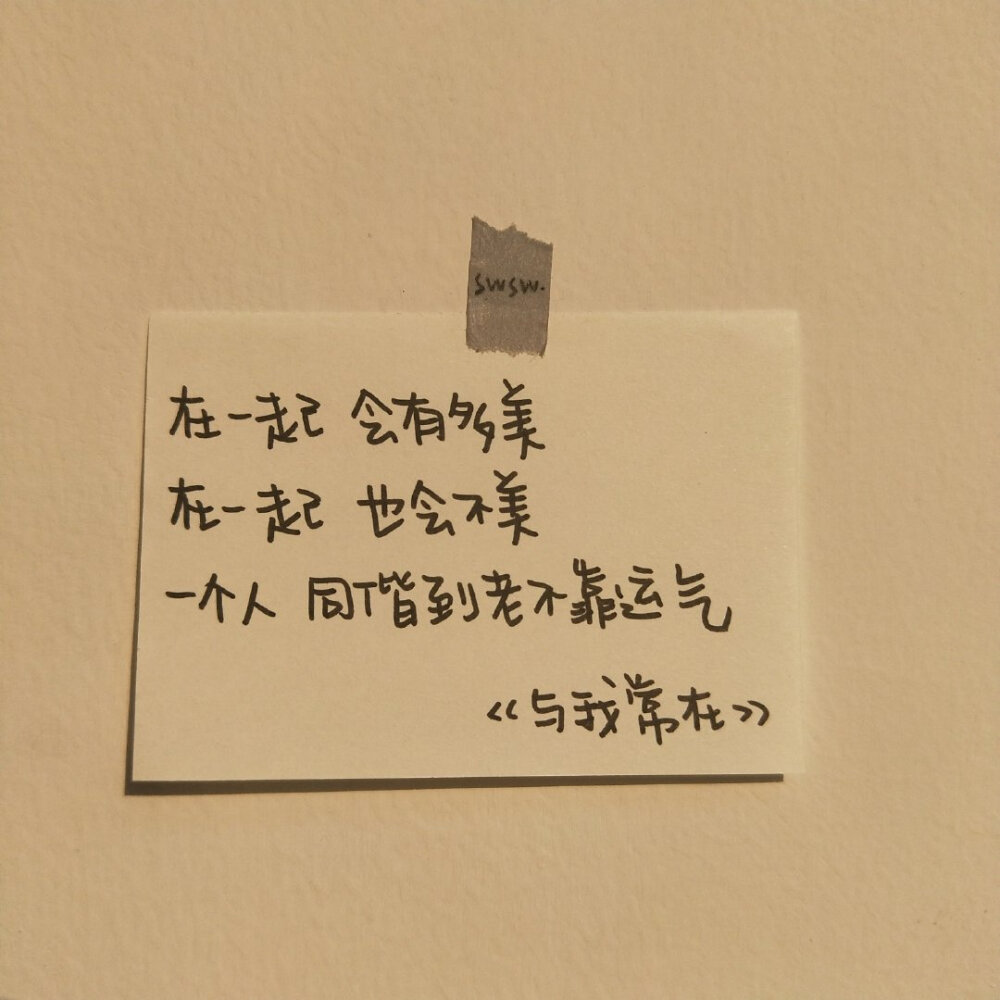 swsw.
在一起 会有多美
在一起 也会不美
一个人 同偕到老不靠运气
《与我常在》